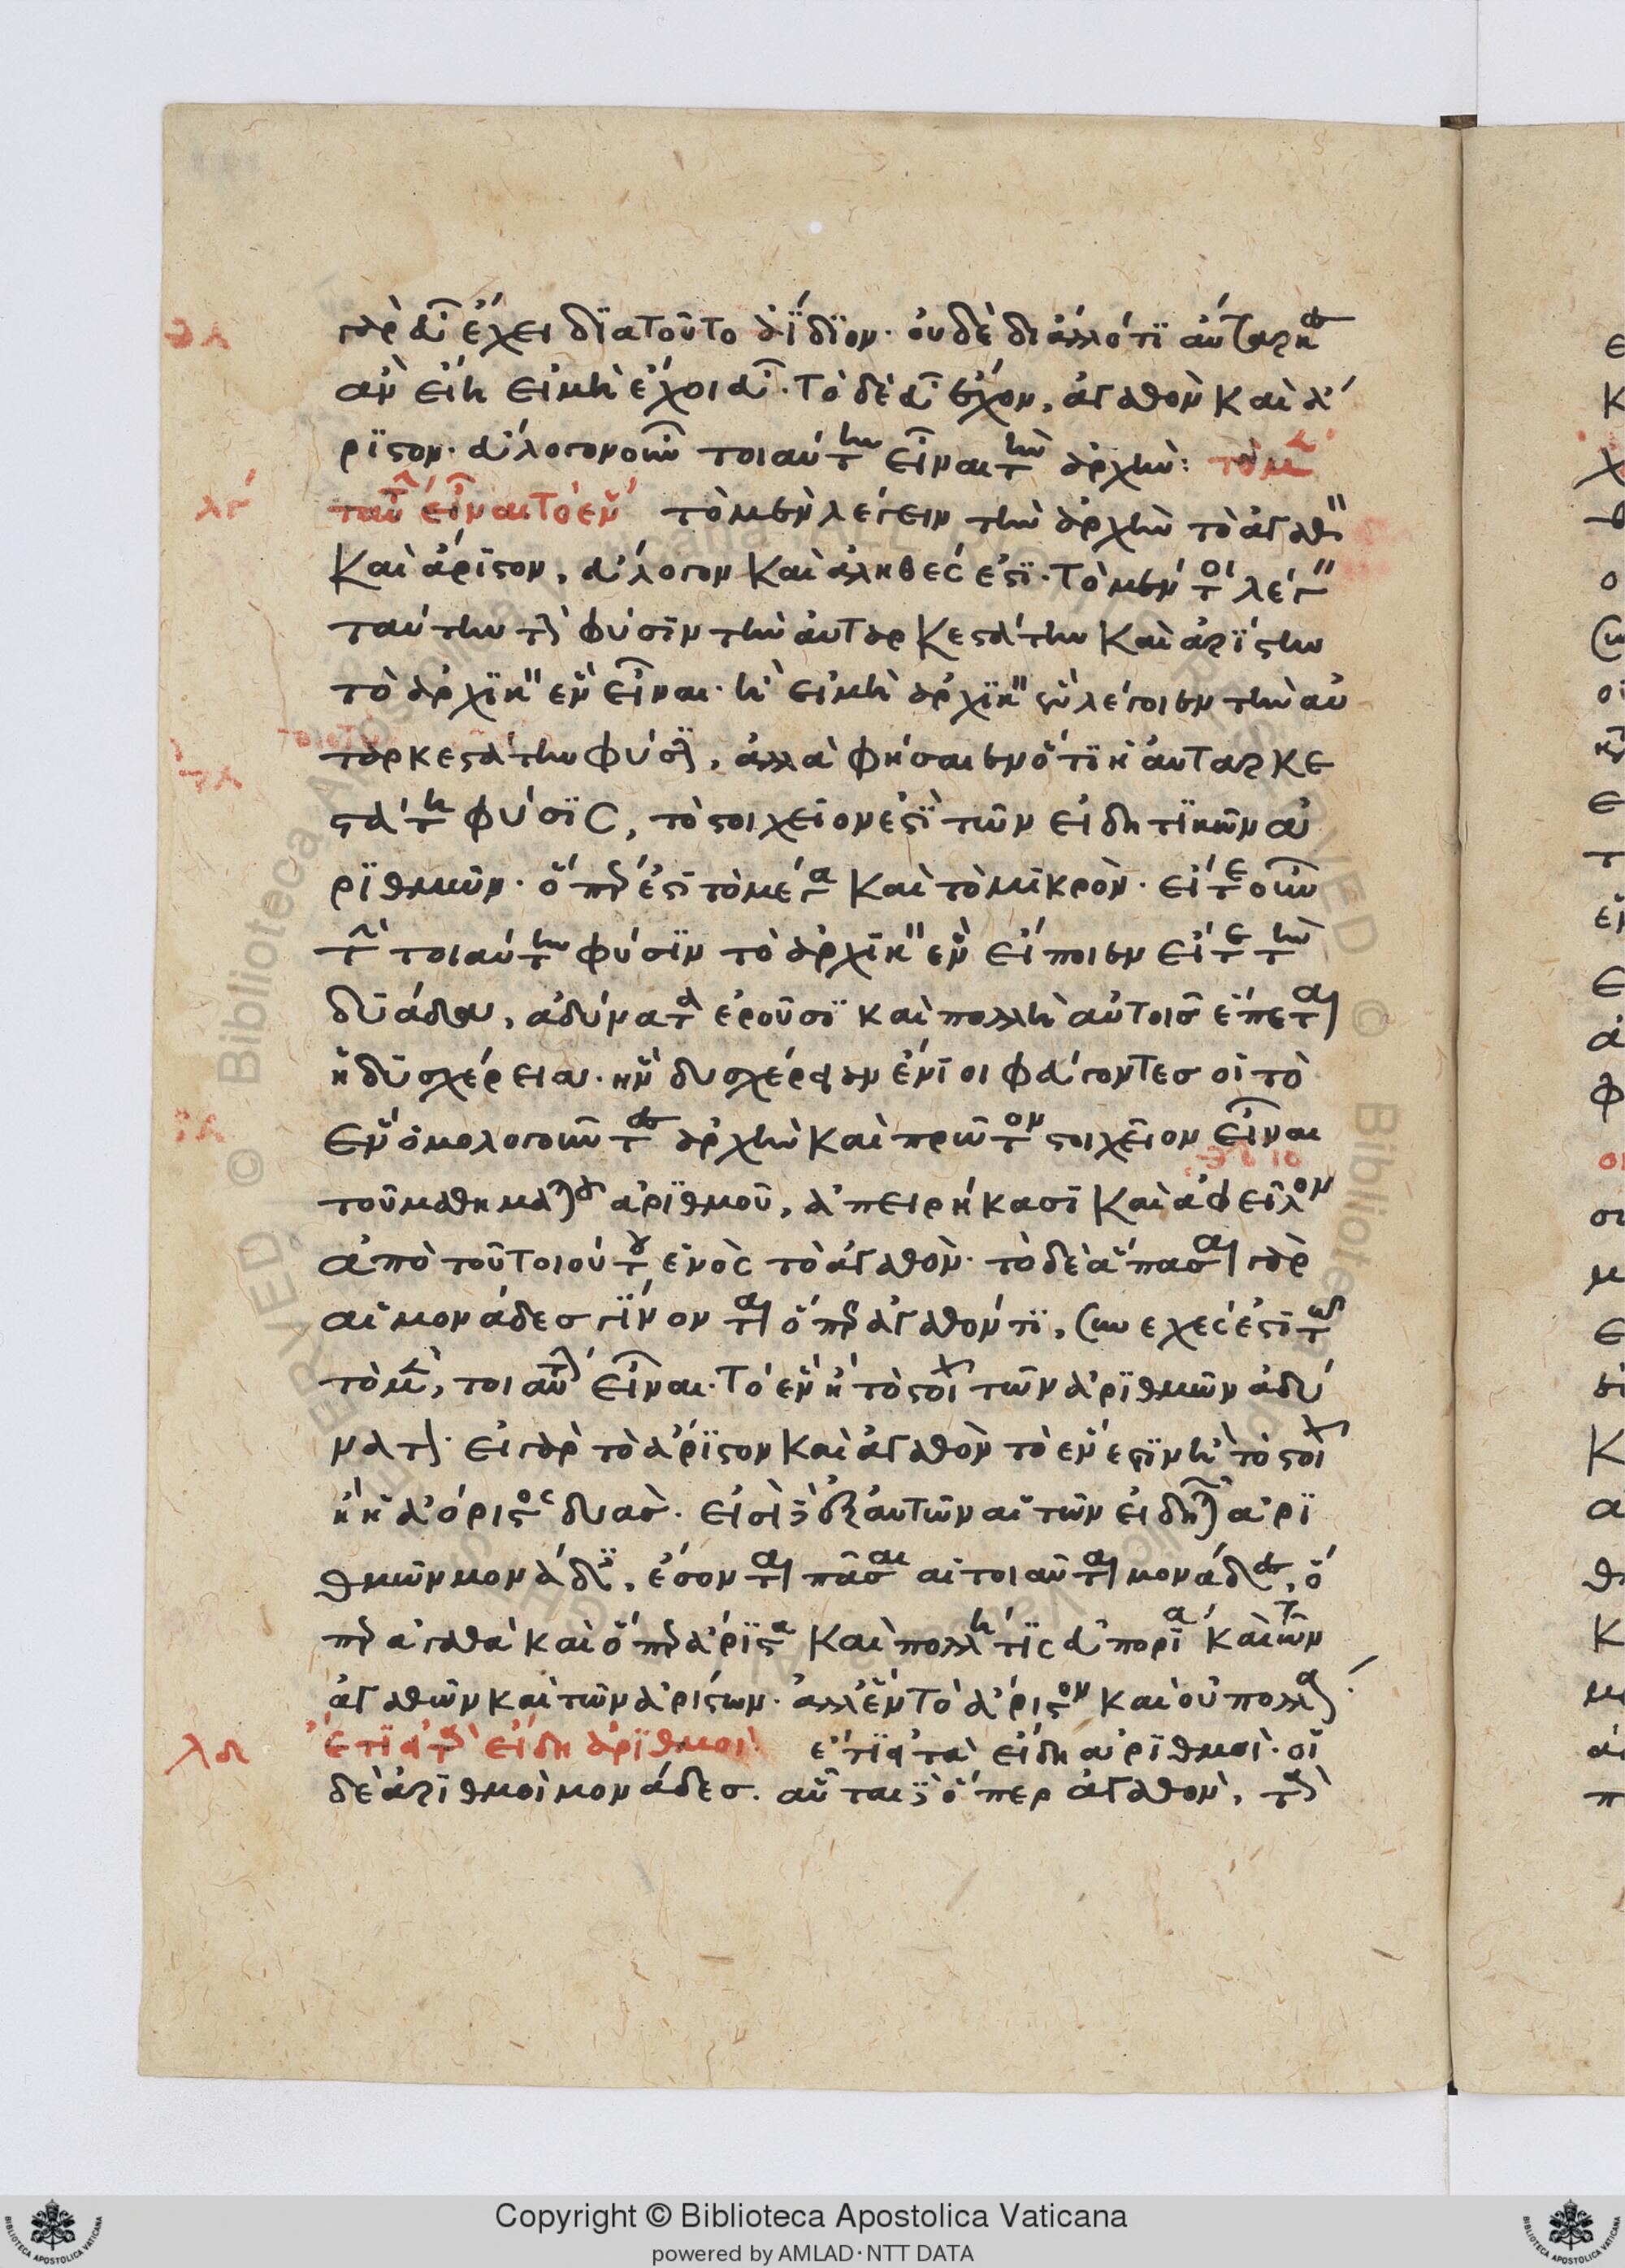 γὰρ εὖ ἔχει διατοῦτο ἀΐδιον· οὐδὲ δι' ἄλλό τι αὐταρκες
ἂν εἴη εἰ μὴ ἔχοι εὖ· τὸ δὲ εὖ ἔχον, ἀγαθὸν καὶ ἄ
ριστον· εὔλογον οὖν τοιαύτην εἶναι τὴν ἀρχὴν: τὸ μέντοι
λγ ταύτην εἶναι τὸ ἓν τὸ μὲν λέγειν τὴν ἀρχὴν τὸ ἀγαθὸν
καὶ ἄριστον, εὔλογον καὶ ἀληθές ἐστι· τὸ μέντοι λέγειν
ταύτην τὴν φύσιν τὴν αὐταρκεστάτην καὶ ἀρίστην
τὸ ἀρχικὸν ἓν εἶναι· ἢ εἰ μὴ ἀρχικὸν ἓν λέγοιεν τὴν αὐ
ταρκεστάτην φύσιν, ἀλλὰ φήσαιεν ὅτι ἡ αὐταρκε
στάτη φύσις, τὸ στοιχεῖον ἐστὶ τῶν εἰδητικῶν ἀ
ριθμῶν· ὅπερ ἐστὶ τὸ μέγα καὶ τὸ μικρὸν· εἴτε οὖν
τὴν τοιαύτην φύσιν τὸ ἀρχικὸν ἓν εἴποιεν εἴτε τὴν
δυάδα, ἀδύνατα ἐροῦσι καὶ πολλὴ αὐτοῖς ἕπεται
ἡ δυσχέρεια· ἣν δυσχέρειαν ἔνιοι φεύγοντες οἱ τὸ
ἓν ὁμολογοῦντες ἀρχὴν καὶ πρῶτον στοιχεῖον εἶναι
τοῦ μαθηματικοῦ ἀριθμοῦ, ἀπειρήκασι καὶ ἀφεῖλον
ἀπὸ τοῦ τοιούτου ἑνὸς τὸ ἀγαθὸν· τὸ δὲ ἅπασαι γὰρ
αἱ μονάδες γίνονται ὅπερ ἀγαθόν τι, συνεχές ἐστι τῷ
τὸ μέντοι, ταύτην εἶναι· τὸ ἓν ἢ τὸ στοιχεῖον τῶν ἀριθμῶν ἀδύ
νατον· εἰ γὰρ τὸ ἄριστον καὶ ἀγαθὸν τὸ ἓν ἐστὶν ἢ τὸ στοιχεῖον
ἢ ἡ ἀόριστος δυάς· εἰσὶ δὲ ἐξ αὐτῶν αἱ τῶν εἰδητικῶν ἀρι
θμῶν μονάδες, ἔσονται πᾶσαι αἱ τοιαῦται μονάδες, ὅ
περ ἀγαθὰ καὶ ὅπερ ἄριστα καὶ πολλή τις εὐπορία καὶ τῶν
ἀγαθῶν καὶ τῶν ἀρίστων· ἀλλ' ἓν τὸ ἄριστον καὶ οὐ πολλά·
λδ ἔτι εἰ τὰ εἴδη ἀριθμοὶ ἔτι εἰ τὰ εἴδη ἀριθμοὶ· οἱ
δὲ ἀριθμοὶ μονάδες· αὗται δὲ ὅπερ ἀγαθὸν, τὰ